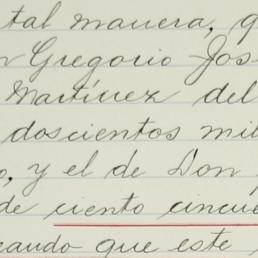 tal manera, q
n Gregorio Jos
Martínez del
doscientos mil
o, y el de Don
de ciento cincue
eando que este